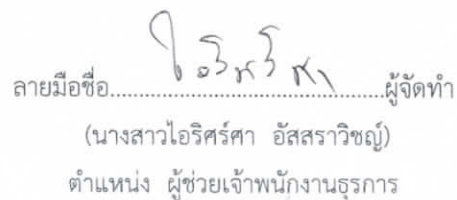 ลายมือชื่อ........................................ผู้จัดทำ
(นางสาวไอริศร์ศา อัสสราวิชญ์)
ตำแหน่ง ผู้ช่วยเจ้าพนักงานธุรการ